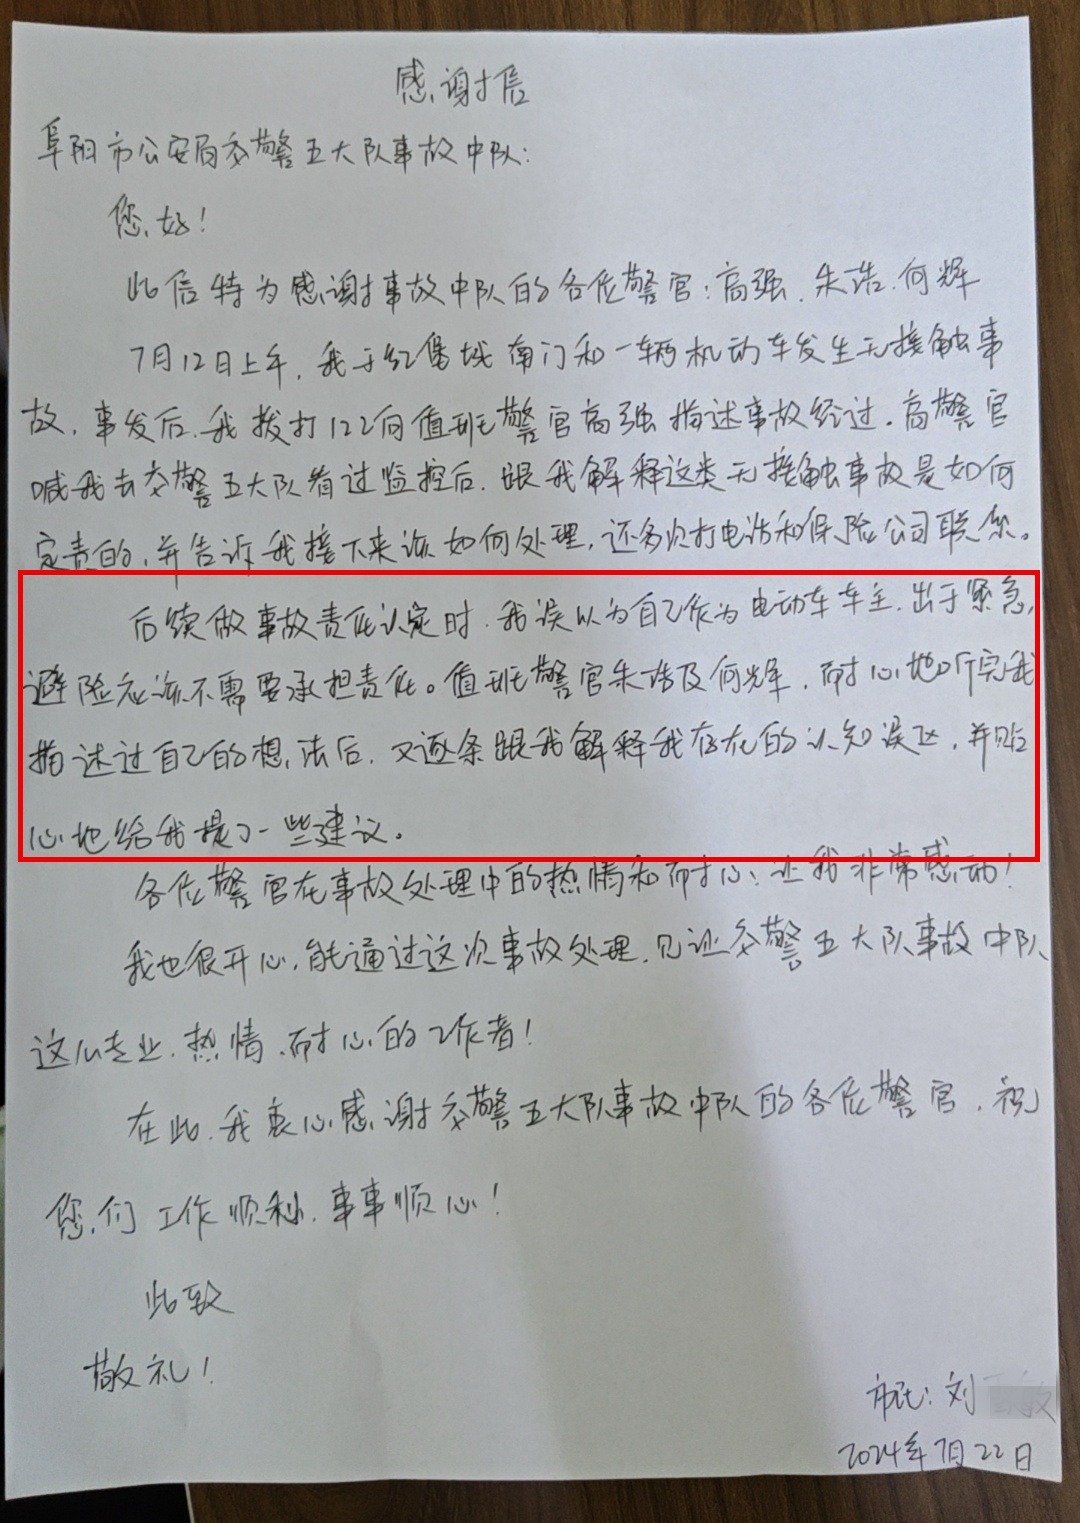 感谢信
阜阳市公安局交警五大队事故中队：
您好！
此信特为感谢事故中队的各位警官：高强、朱浩、何辉
7月12日上午，我于红堡城南门和一辆机动车发生无接触事
故，事发后，我拨打122向值班警官高强描述事故经过。高警官
喊我去交警五大队看过监控后，跟我解释这类无接触事故是如何
定责的，并告诉我接下来该如何处理，还多次打电话和保险公司联系。
后续做事故责任认定时，我误以为自己作为电动车车主，出于紧急
避险应该不需要承担责任。值班警官朱浩及何辉，耐心地听完我
描述过自己的想法后，又逐条跟我解释我存在的认知误区，并贴
心地给我提了一些建议。
各位警官在事故处理中的热情和耐心，让我非常感动！
我也很开心，能通过这次事故处理，见证交警五大队事故中队
这么专业、热情、耐心的工作者！
在此，我衷心感谢交警五大队事故中队的各位警官，祝
您们工作顺利，事事顺心！
此致
敬礼！
市民：刘
2024年7月22日